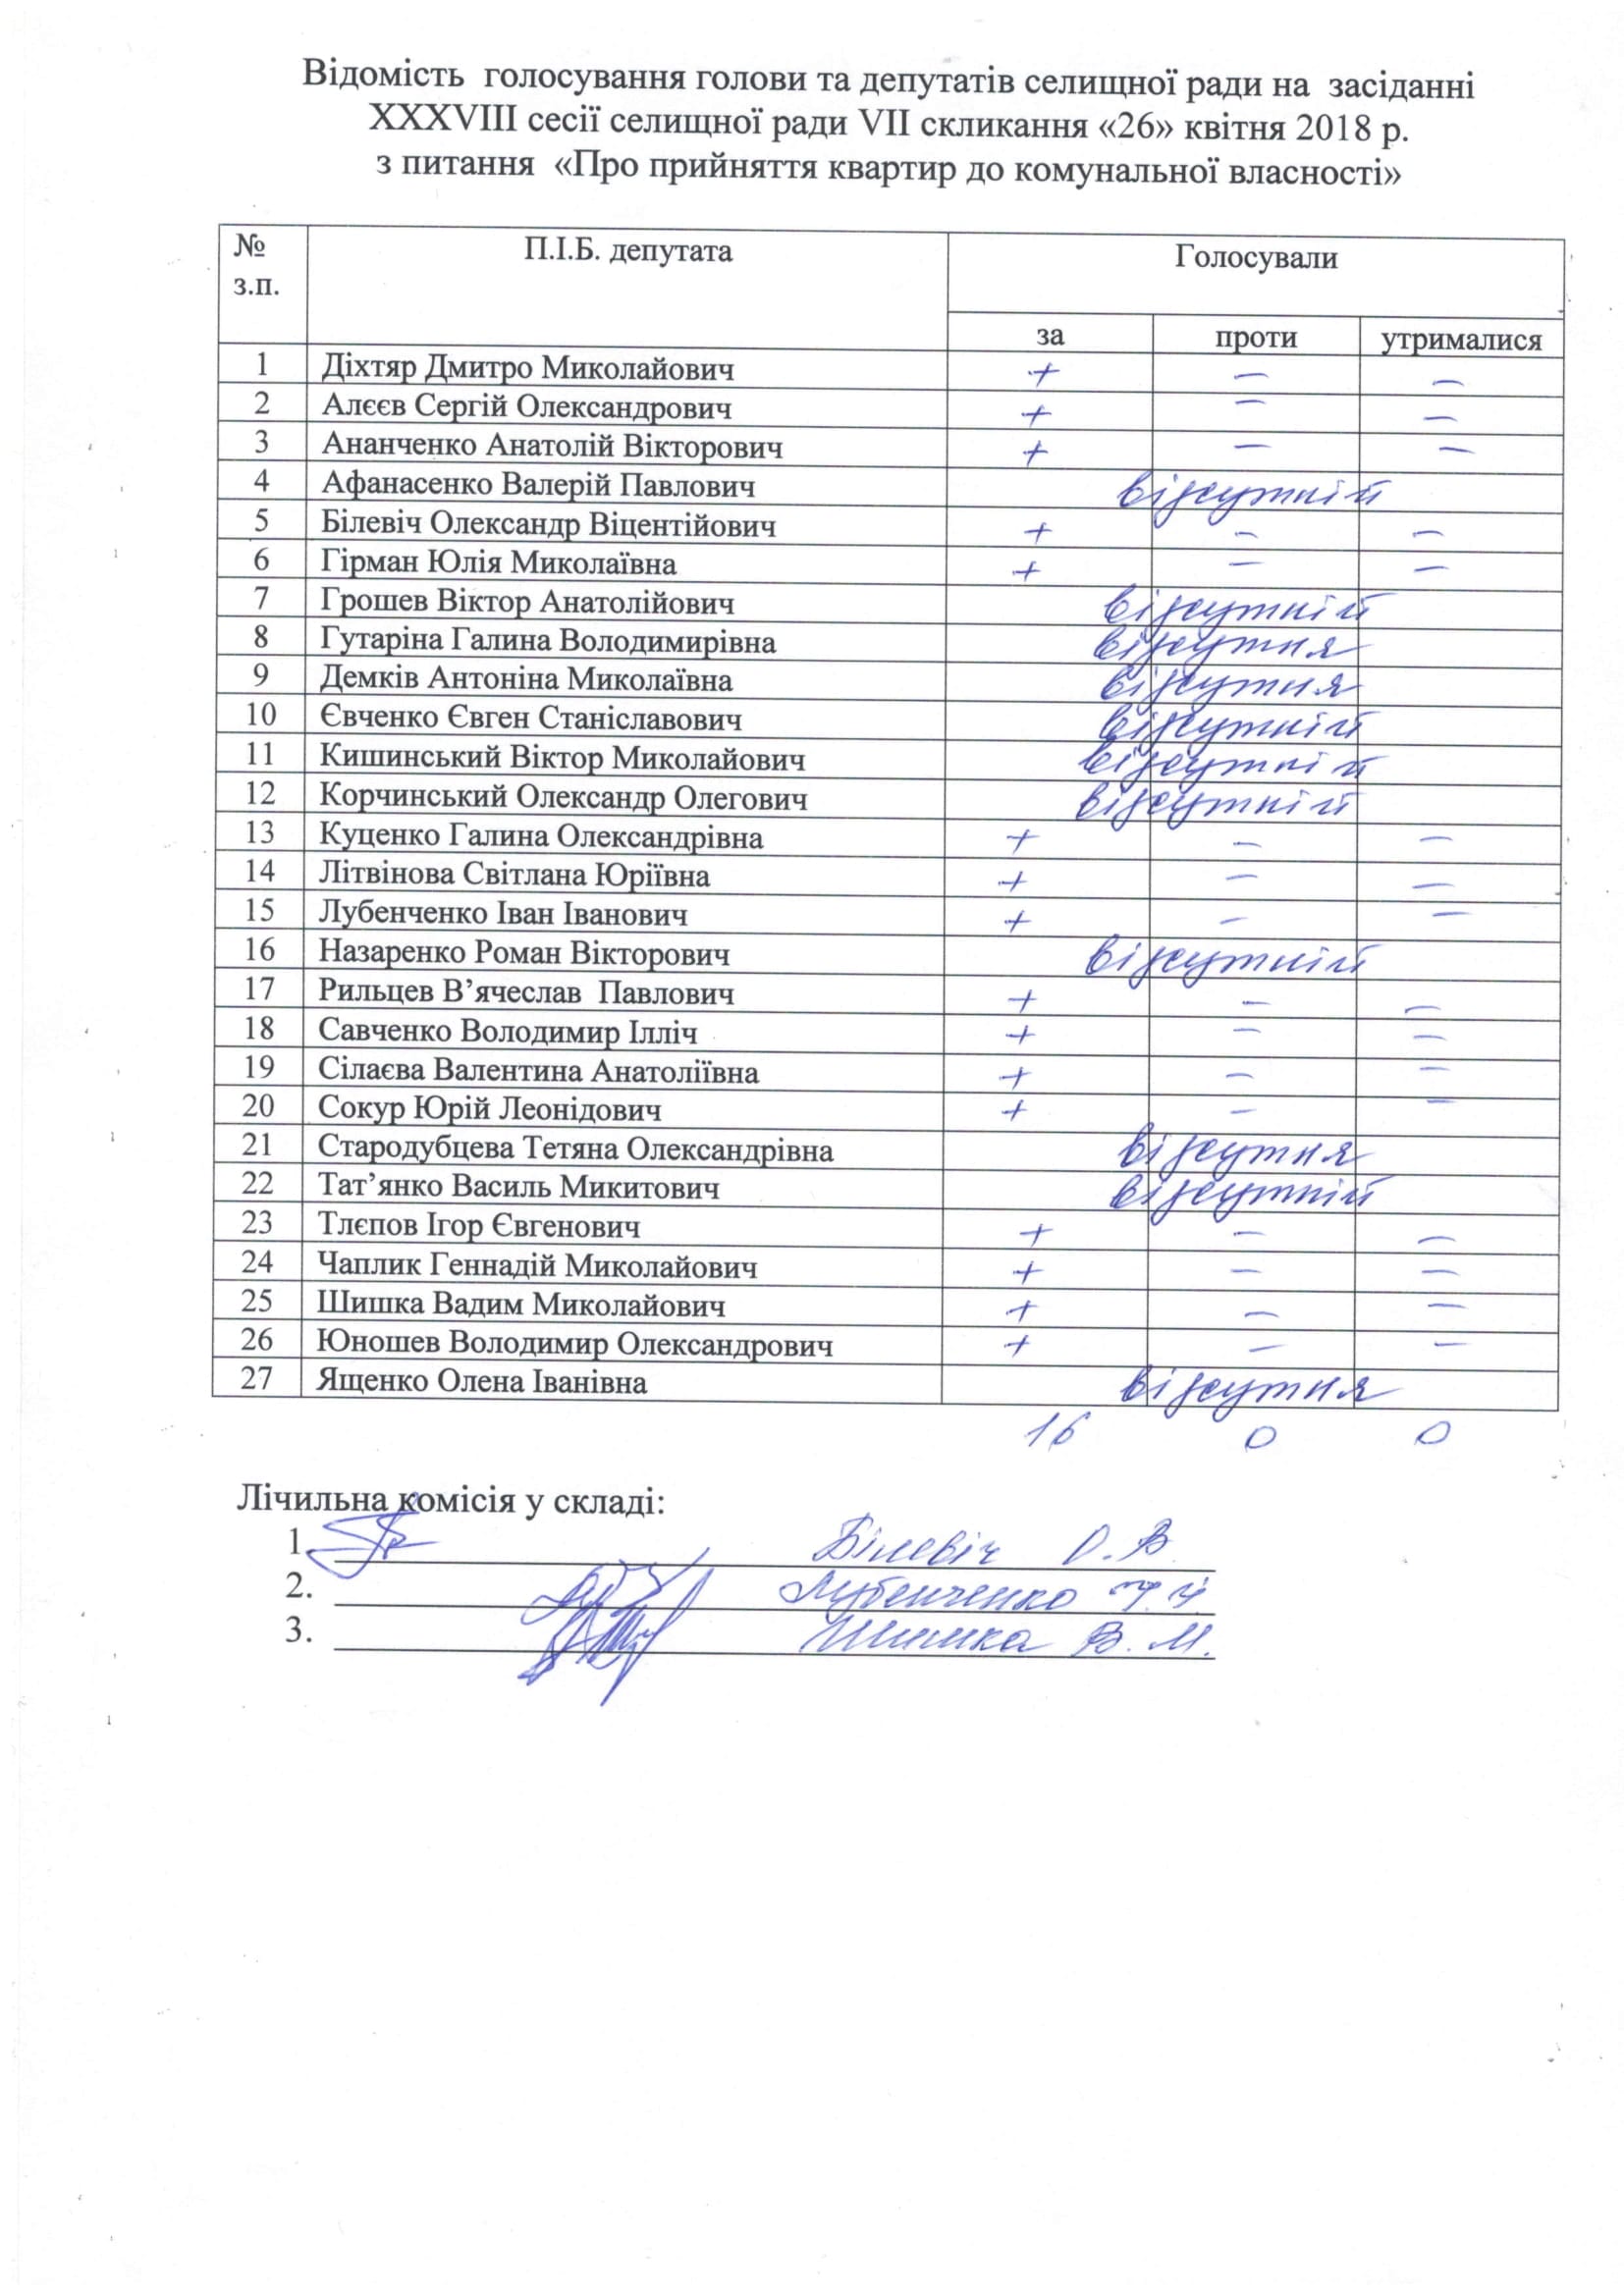 Відомість голосування голови та депутатів селищної ради на засіданні
XXXVIII сесії селищної ради VII скликання «26» квітня 2018 р.
з питання «Про прийняття квартир до комунальної власності»
№ з.п. П.І.Б. депутата Голосували
за проти утрималися
1 Діхтяр Дмитро Миколайович + – –
2 Алєєв Сергій Олександрович + – –
3 Ананченко Анатолій Вікторович + – –
4 Афанасенко Валерій Павлович відсутній
5 Білевіч Олександр Віцентійович + – –
6 Гірман Юлія Миколаївна + – –
7 Грошев Віктор Анатолійович відсутній
8 Гутаріна Галина Володимирівна відсутня
9 Демків Антоніна Миколаївна відсутня
10 Євченко Євген Станіславович відсутній
11 Кишинський Віктор Миколайович відсутній
12 Корчинський Олександр Олегович відсутній
13 Куценко Галина Олександрівна + – –
14 Літвінова Світлана Юріївна + – –
15 Лубенченко Іван Іванович + – –
16 Назаренко Роман Вікторович відсутній
17 Рильцев В’ячеслав Павлович + – –
18 Савченко Володимир Ілліч + – –
19 Сілаєва Валентина Анатоліївна + – –
20 Сокур Юрій Леонідович + – –
21 Стародубцева Тетяна Олександрівна відсутня
22 Тат’янко Василь Микитович відсутній
23 Тлєпов Ігор Євгенович + – –
24 Чаплик Геннадій Миколайович + – –
25 Шишка Вадим Миколайович + – –
26 Юношев Володимир Олександрович + – –
27 Ященко Олена Іванівна відсутня
16 0 0
Лічильна комісія у складі:
1. Білевіч О. В
2. Лубенченко
3. Шишка В. М.